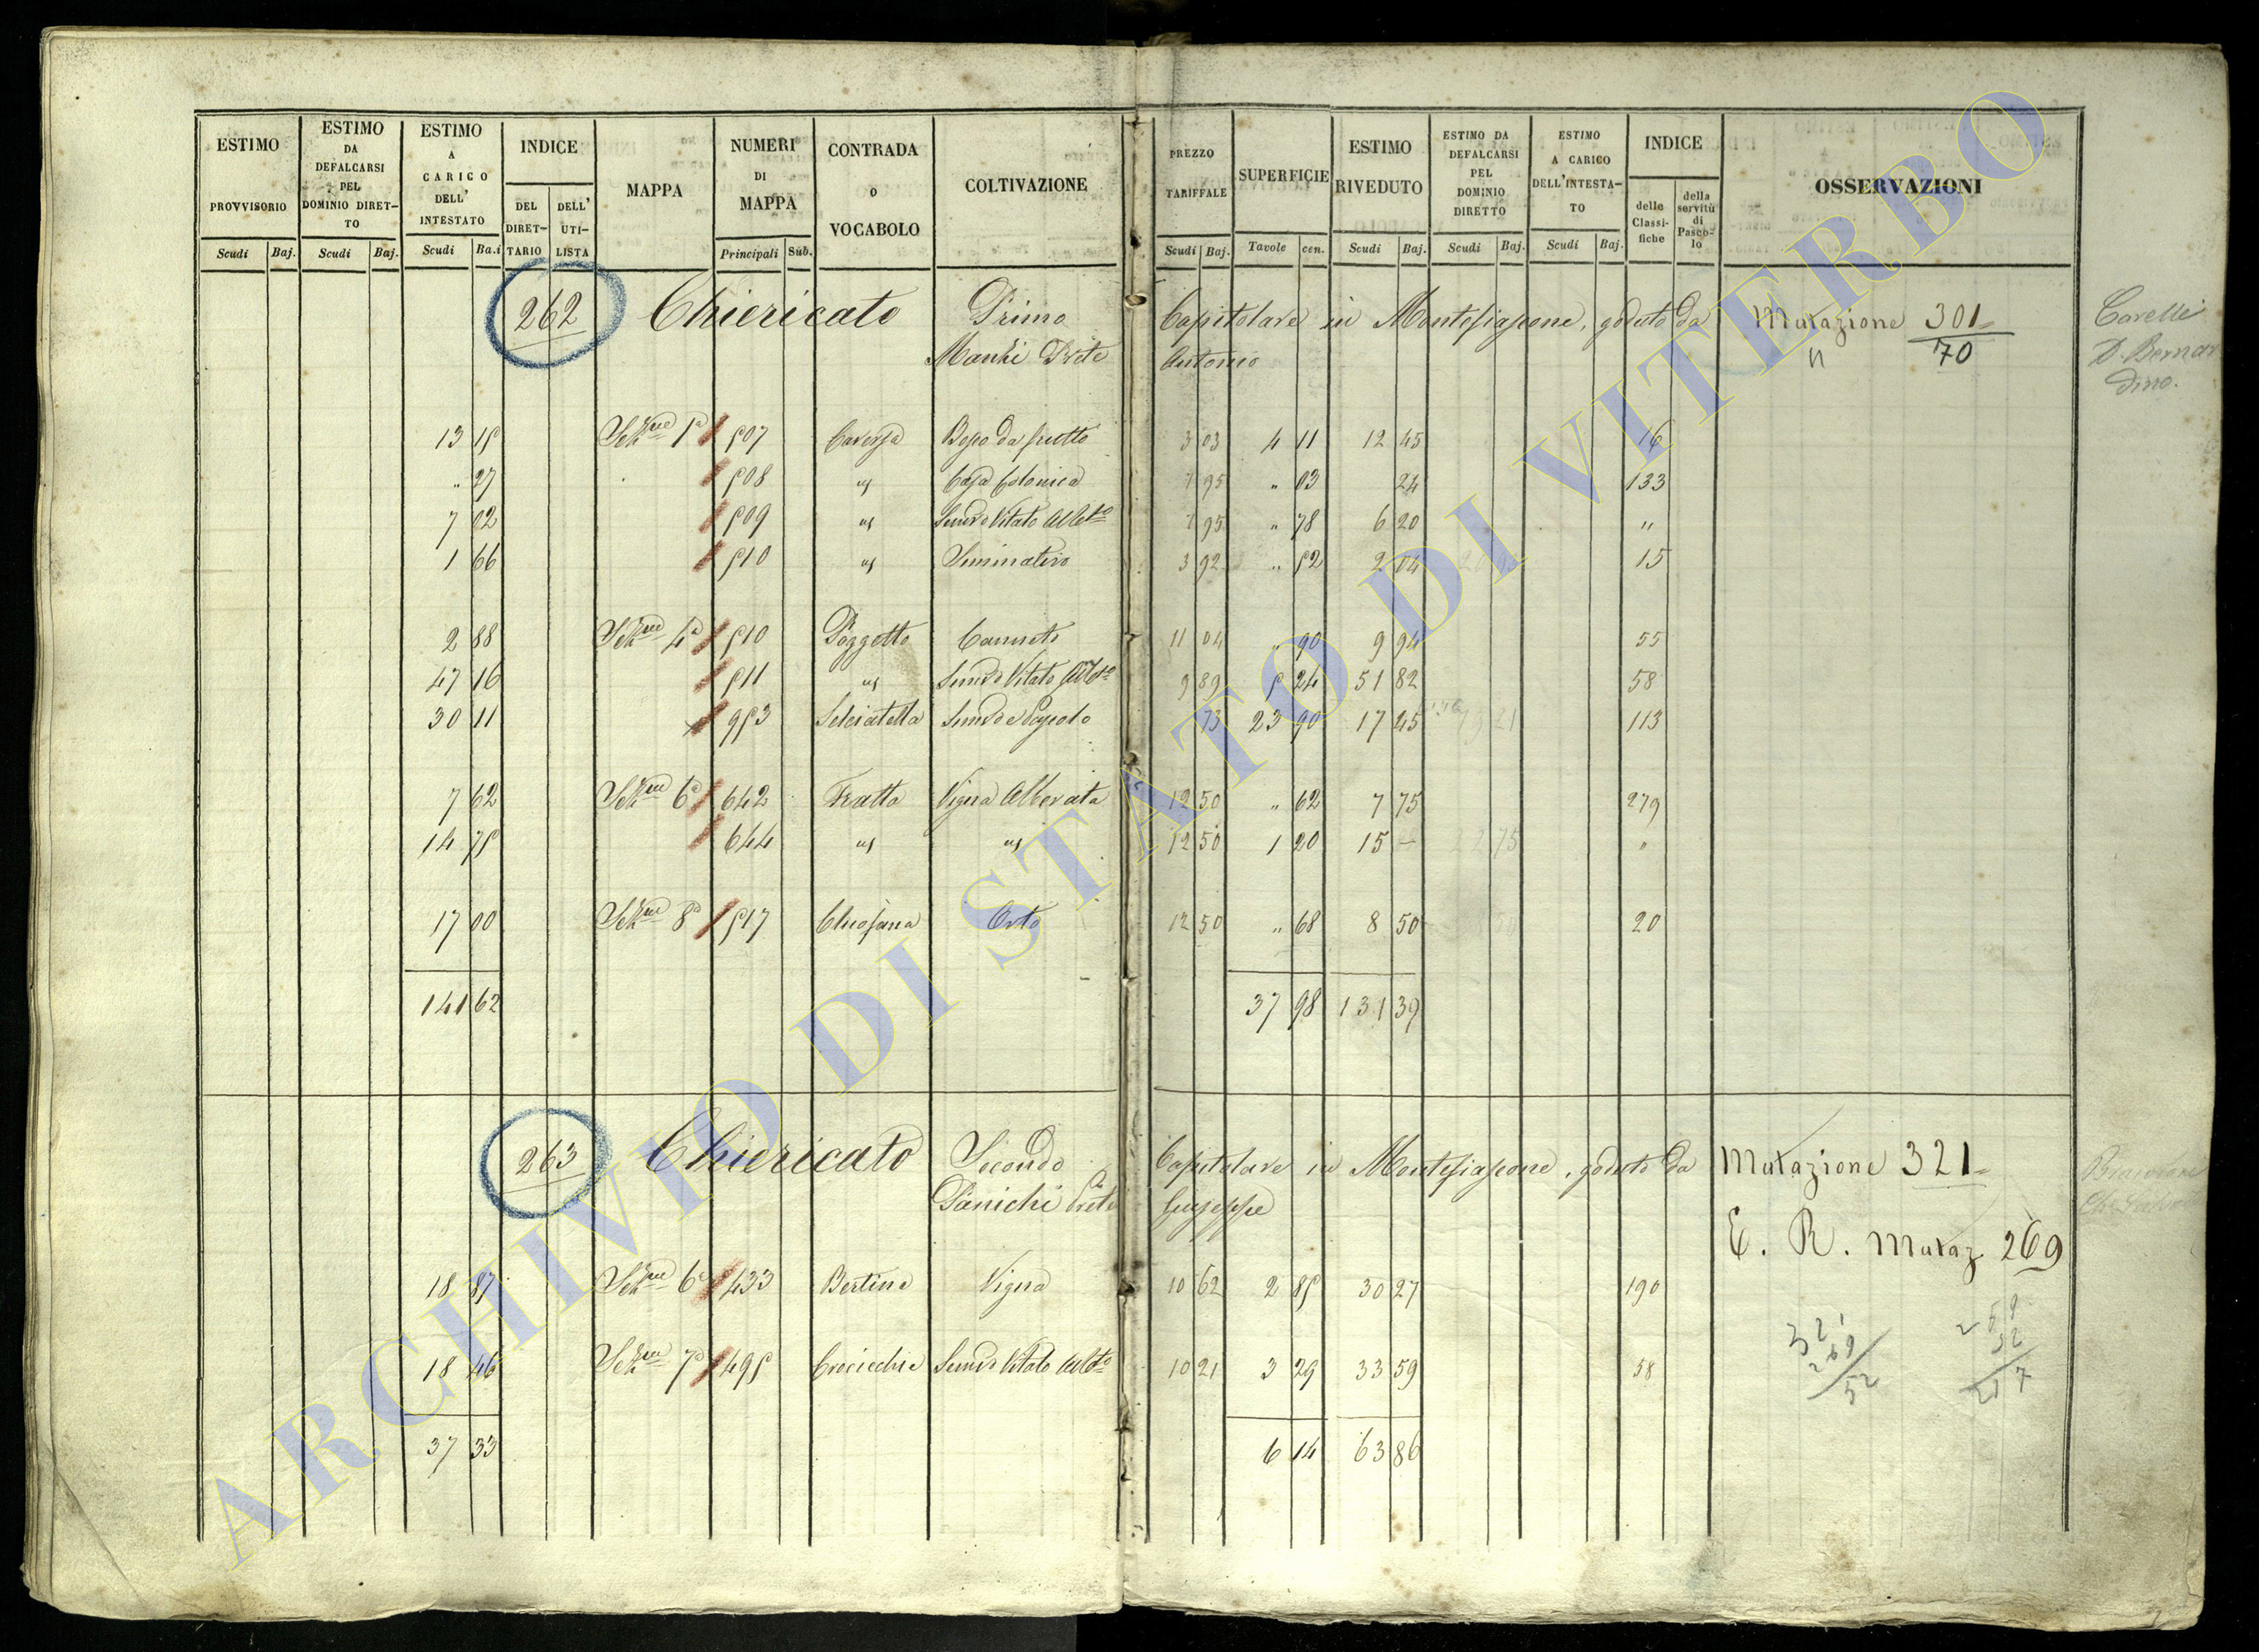 ESTIMO PROVVISORIO Scudi Baj.
ESTIMO DA DEFALCARSI PEL DOMINIO DIRETTO Scudi Baj.
ESTIMO A CARICO DELL' INTESTATO Scudi Ba.i
INDICE DEL DIRETTARIO DELL' UTILISTA
MAPPA
NUMERI DI MAPPA Principali Sub.
CONTRADA O VOCABOLO
COLTIVAZIONE
PREZZO TARIFFALE Scudi Baj.
SUPERFICIE Tavole cen.
ESTIMO RIVEDUTO Scudi Baj.
ESTIMO DA DEFALCARSI PEL DOMINIO DIRETTO Scudi Baj.
ESTIMO A CARICO DELL'INTESTATO Scudi Baj.
INDICE delle Classifiche della servitù di Pascolo
OSSERVAZIONI
262 Chiericato Primo Capitolare in Montefiascone, goduto da Mutazione 301
Prete Antonio 70
Carelli
D. Bernar
dino.
13 15 Sezne 1a 507 Caversa Bosco da frutto 3 03 4 11 12 45 16
" 27 508 " Casa Colonica 7 95 " 03 24 133
7 02 509 " Semivo Vitato Albto 7 95 " 78 6 20 "
1 66 510 " Seminativo 3 92 " 52 2 04 15
2 88 Sezne 4a 510 Poggetto Canneto 11 04 " 90 9 94 55
47 16 511 " Semivo Vitato Albto 9 89 5 24 51 82 58
30 11 953 Selciatella Semivo e Pascolo 73 23 90 17 45 113
7 62 Sezne 6a 642 Fratta Vigna Alberata 12 50 " 62 7 75 279
14 75 644 " " 12 50 1 20 15 — "
17 00 Sezne 8a 517 Orto 12 50 " 68 8 50 20
141 62 37 98 131 39
263 Chiericato Secondo Capitolare in Montefiascone, goduto da Mutazione 321
Panichi Prete Giuseppe
E. R. Mutaz. 269
18 87 Sezne 6a 433 Bertina Vigna 10 62 2 85 30 27 190
18 46 Sezne 7a 495 Crocicchie Semivo Vitato Albto 10 21 3 29 33 59 58
321
269
52
269
52
217
37 33 6 14 63 86
ARCHIVIO DI STATO DI VITERBO